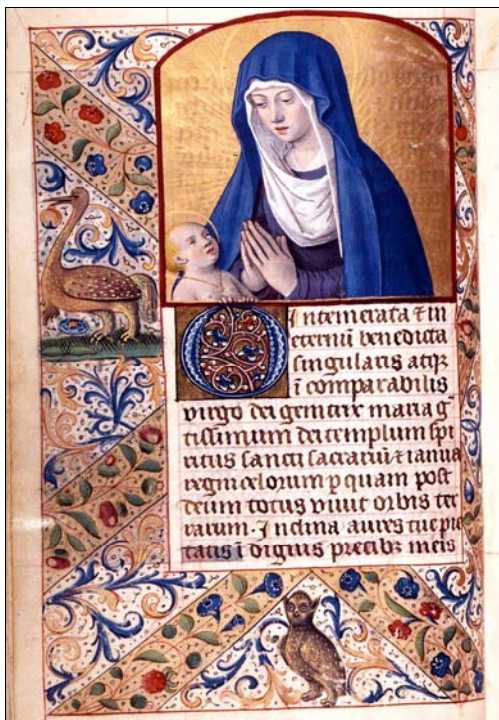 O Intemerata ⁊ in
eternū benedicta
singularis atq̄
ī comparabilis
virgo dei genitrix maria ḡ
tissimum dei templum spi
ritus sancti sacrariū ⁊ ianua
regni celorum p quam post
deum totus vivit orbis ter
rarum. Inclina aures tue pie
tatis ī dignis precibꝫ meis